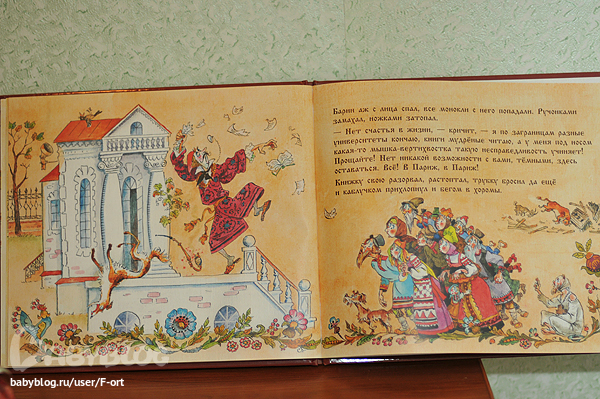 Барин аж с лица спал, все монокли с него попадали. Ручонками
замахал, ножками затопал.
— Нет счастья в жизни, — кричит, — я по заграницам разные
университеты кончаю, книги мудрёные читаю, а у меня под носом
какая-то мышка-вертихвостка такую несправедливость учиняет!
Прощайте! Нет никакой возможности с вами, тёмными, здесь
оставаться. Всё! В Париж, в Париж!
Книжку свою разорвал, растоптал, трубку бросил да ещё
и каблучком прихлопнул и бегом в хоромы.
babyblog.ru/user/F-ort